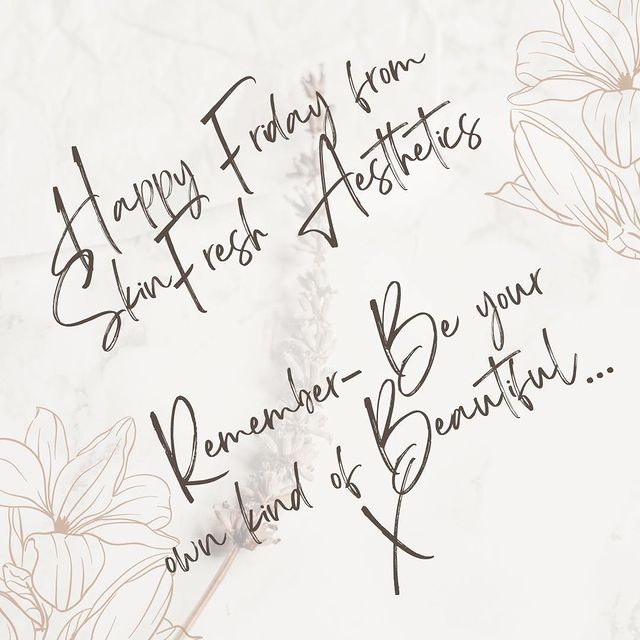 Happy Friday from
SkinFresh Aesthetics
Remember- Be your
own kind of Beautiful...
X